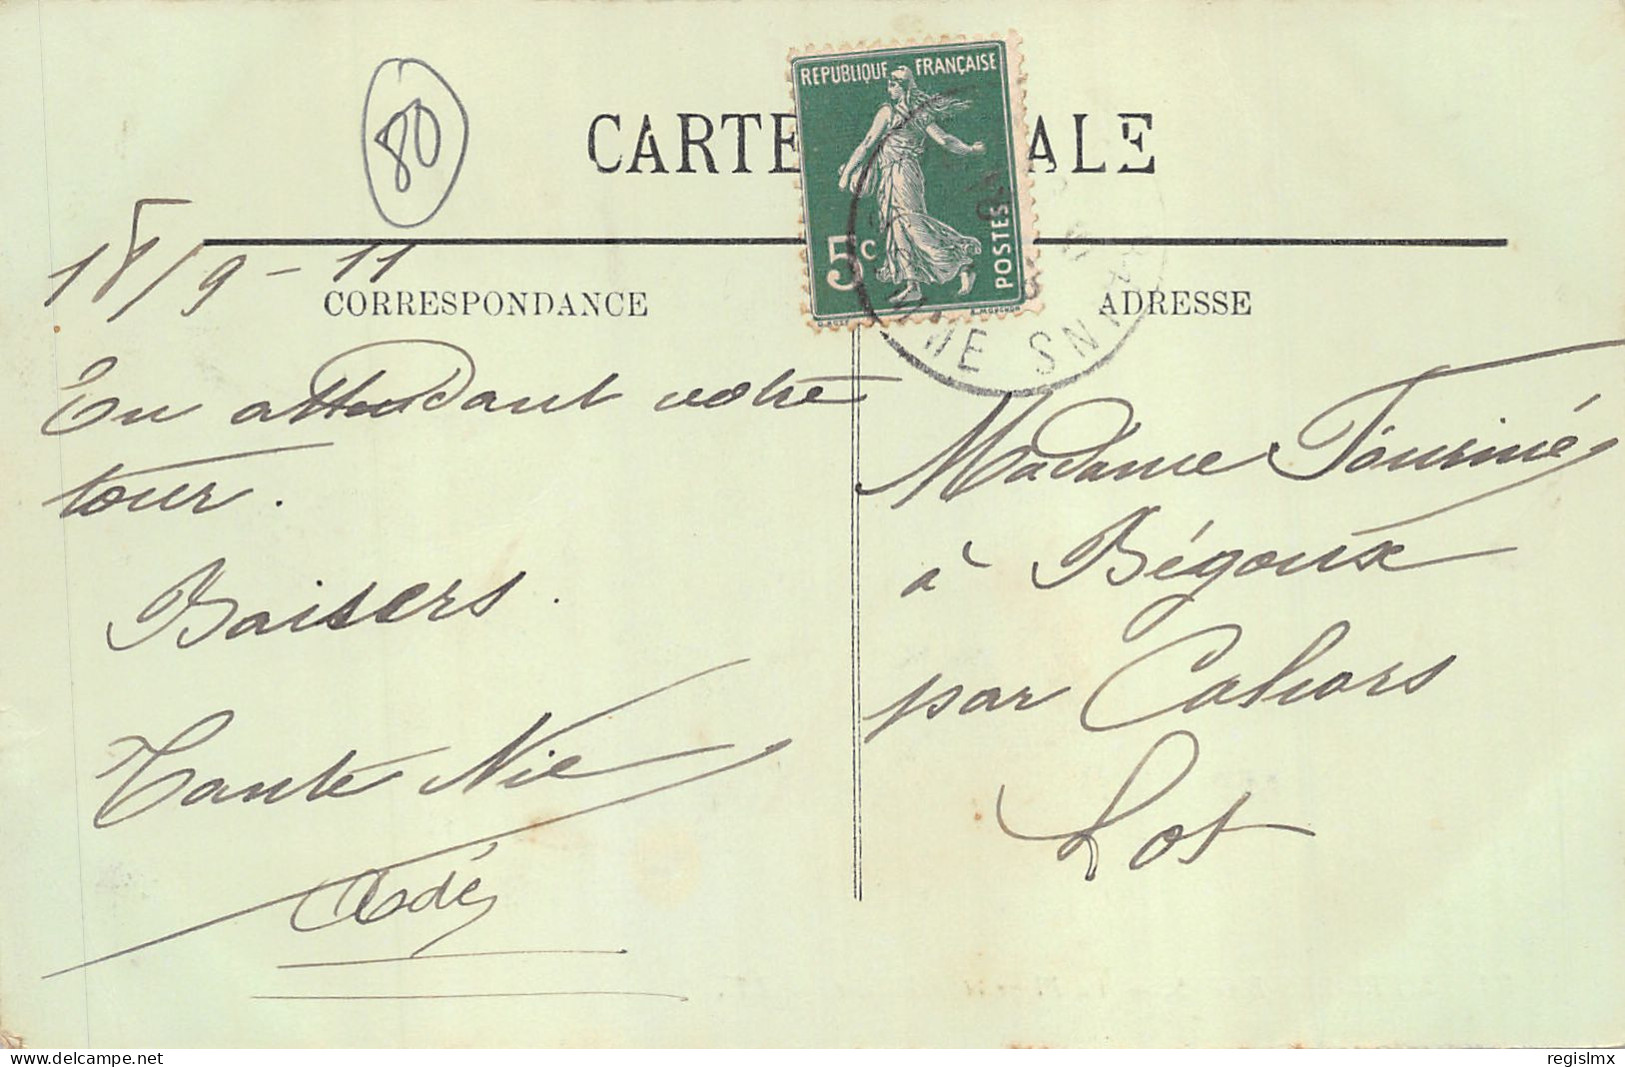 80
CARTE ALE
REPUBLIQUE FRANÇAISE
5c
POSTES
18/9-11
CORRESPONDANCE
ADRESSE
En attendant votre
tour.
Baisers.
Tante Nie
Madame Fourmié
à Bégoux
par Cahors
Lot
delcampe.net
regislmx